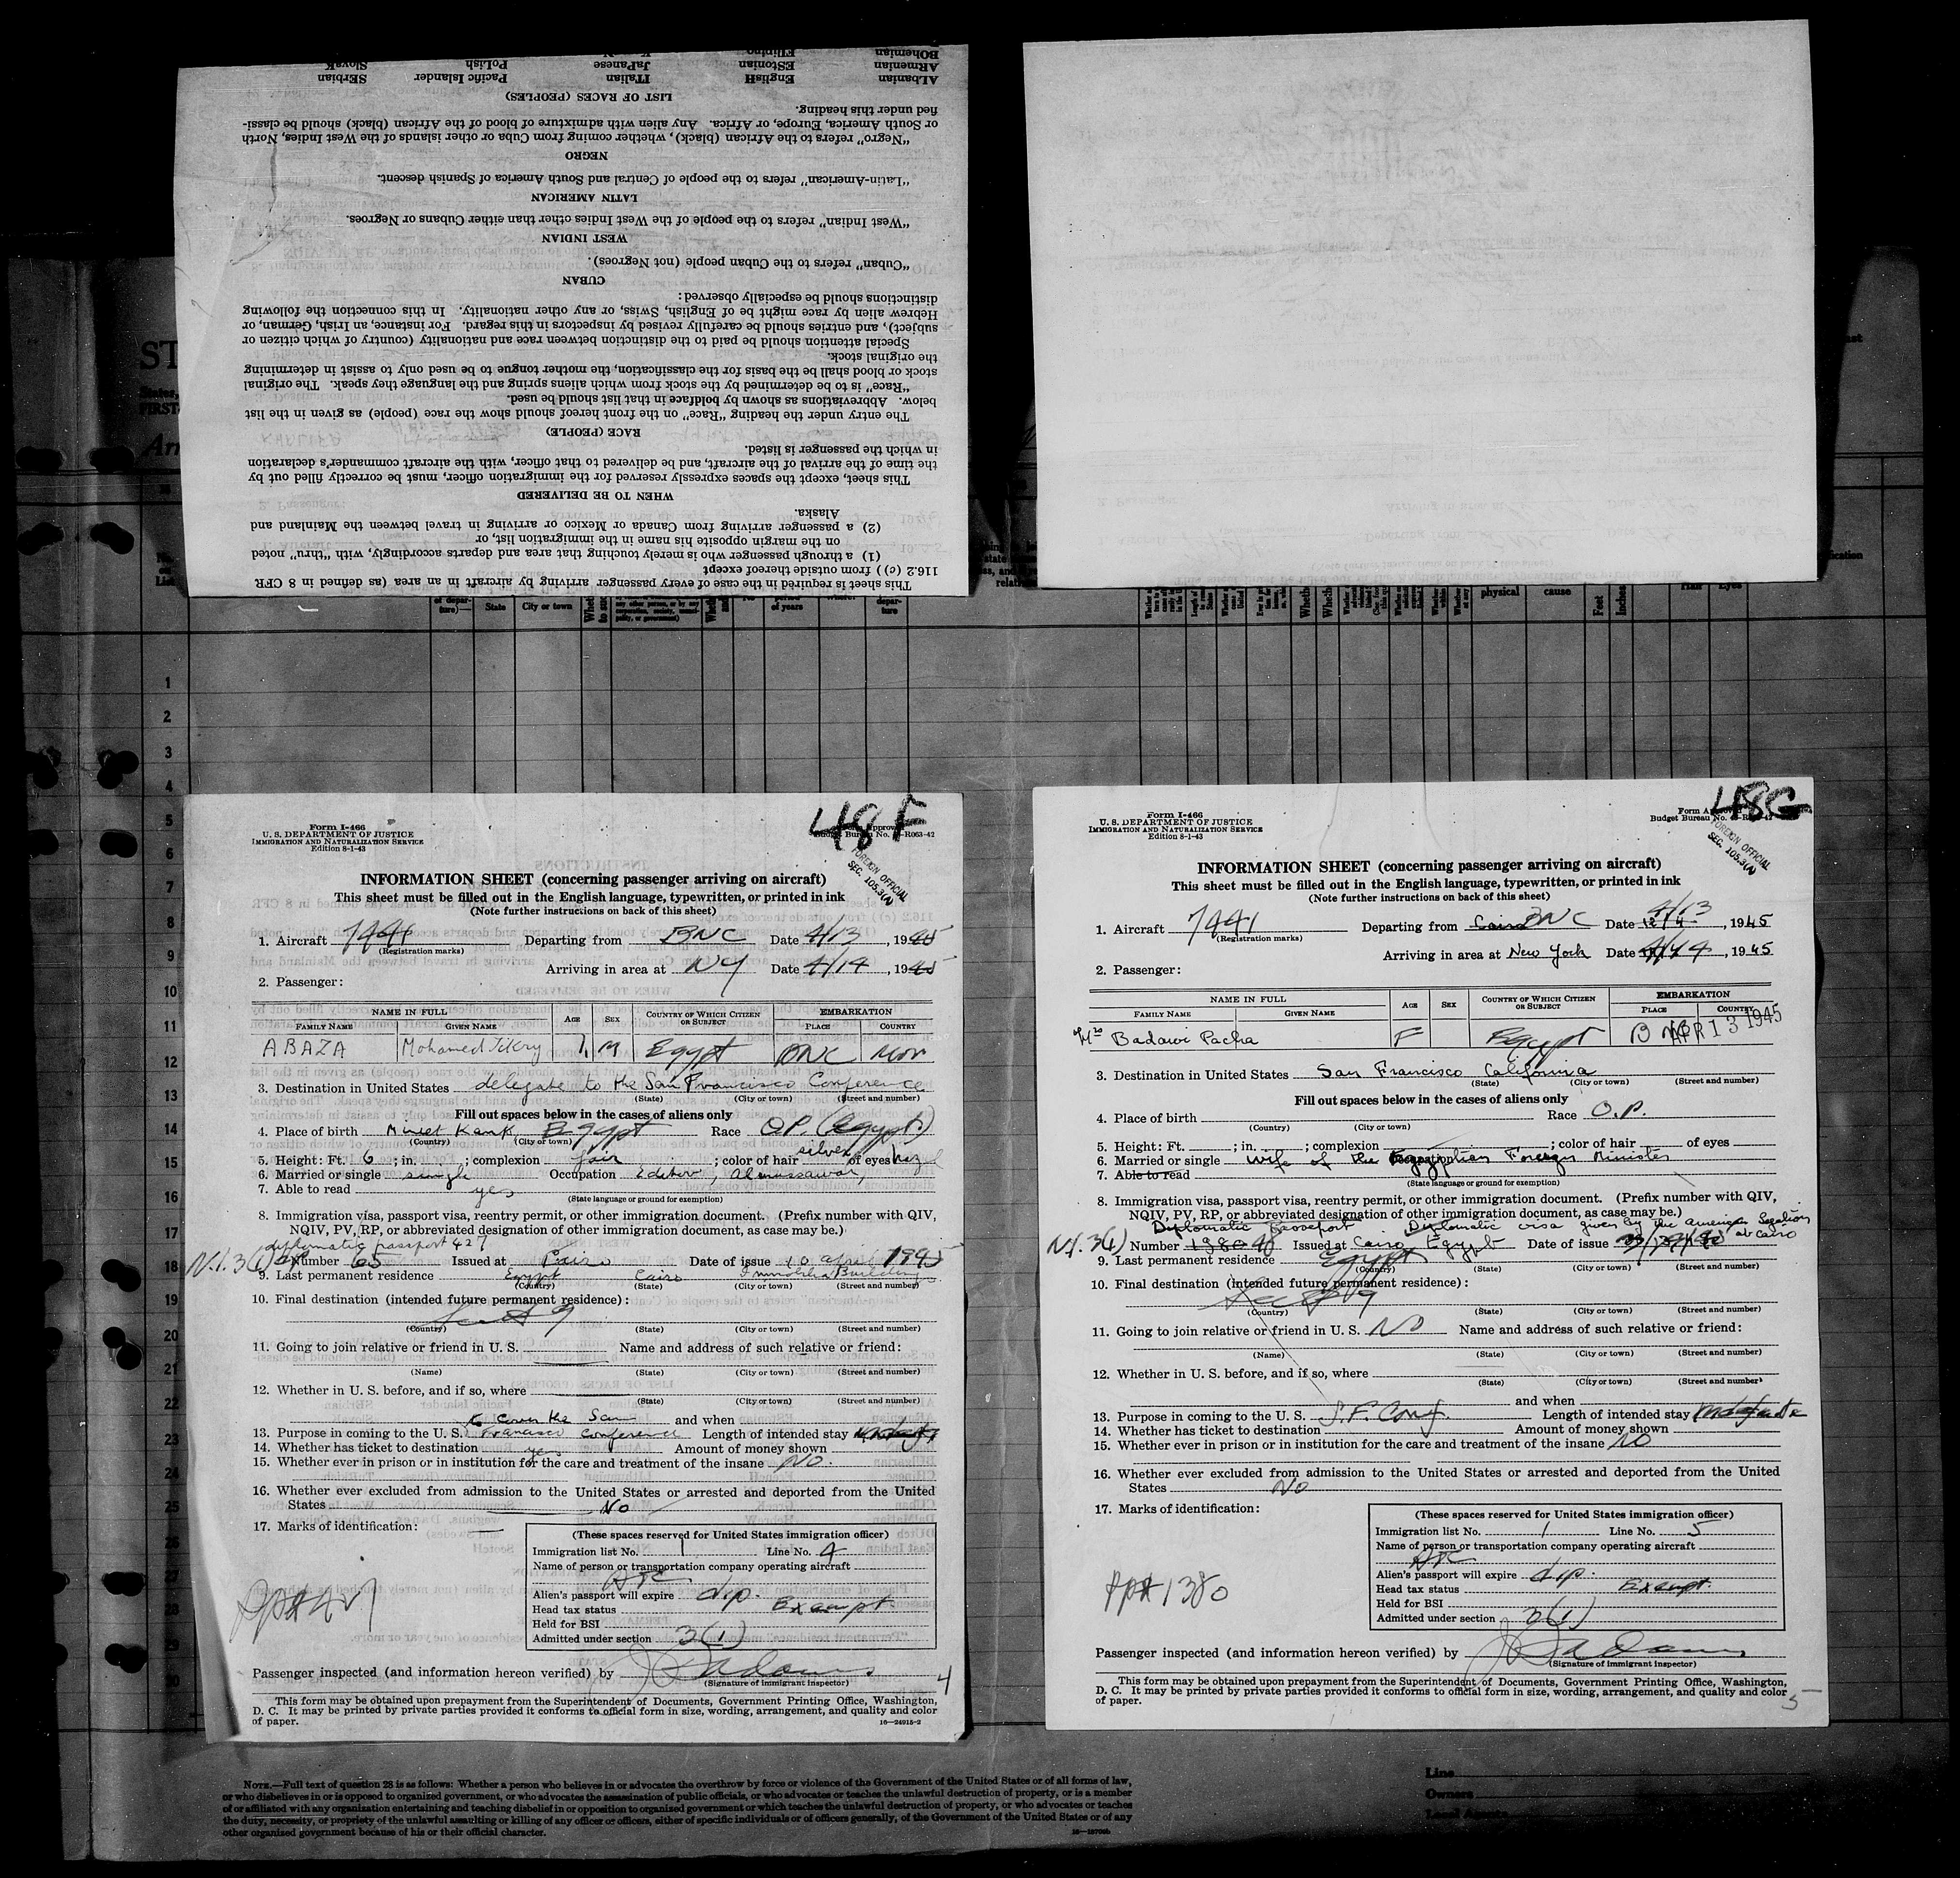 BOHEMIAN Filipino
ARmenian EStonian JaPanese PoLish SlovaK
ALbanian EngliSH ITalian Pacific Islander SErbian
LIST OF RACES (PEOPLES)
fied under this heading.
or South America, Europe, or Africa. Any alien with admixture of blood of the African (black) should be classi-
"Negro" refers to the African (black), whether coming from Cuba or other islands of the West Indies, North
NEGRO
"Latin-American" refers to the people of Central and South America of Spanish descent.
LATIN AMERICAN
"West Indian" refers to the people of the West Indies other than either Cubans or Negroes.
WEST INDIAN
"Cuban" refers to the Cuban people (not Negroes).
CUBAN
distinctions should be especially observed:
Hebrew alien by race might be of English, Swiss, or any other nationality. In this connection the following
subject), and entries should be carefully revised by inspectors in this regard. For instance, an Irish, German, or
Special attention should be paid to the distinction between race and nationality (country of which citizen or
the original stock.
stock or blood shall be the basis for the classification, the mother tongue to be used only to assist in determining
"Race" is to be determined by the stock from which aliens spring and the language they speak. The original
below. Abbreviations as shown by boldface in that list should be used.
The entry under the heading "Race" on the front hereof should show the race (people) as given in the list
RACE (PEOPLE)
in which the passenger is listed.
the time of the arrival of the aircraft, and be delivered to that officer, with the aircraft commander's declaration
This sheet, except the spaces expressly reserved for the immigration officer, must be correctly filled out by
WHEN TO BE DELIVERED
Alaska.
(2) a passenger arriving from Canada or Mexico or arriving in travel between the Mainland and
on the margin opposite his name in the immigration list, or
(1) a through passenger who is merely touching that area and departs accordingly, with "thru" noted
116.2 (c)) from outside thereof except
This sheet is required in the case of every passenger arriving by aircraft in an area (as defined in 8 CFR
of depar- ture)— State City or town of years depar- ture physical cause Feet Inches
1
2
3
4
5
6
7
8
9
10
11
12
13
14
15
16
17
18
19
20
21
22
23
24
25
26
27
28
29
30
48F
Form I-466
U. S. DEPARTMENT OF JUSTICE
IMMIGRATION AND NATURALIZATION SERVICE
Edition 8-1-43
Budget Bureau No. R063-42
FOREIGN OFFICIAL
SEC. 105.3(A)
INFORMATION SHEET (concerning passenger arriving on aircraft)
This sheet must be filled out in the English language, typewritten, or printed in ink
(Note further instructions on back of this sheet)
1. Aircraft 7441 Departing from BNC Date 4/13, 1945
(Registration marks)
Arriving in area at NY Date 4/14, 1945
2. Passenger:
NAME IN FULL AGE SEX COUNTRY OF WHICH CITIZEN OR SUBJECT EMBARKATION
FAMILY NAME GIVEN NAME PLACE COUNTRY
ABAZA Mohamed Fikry M Egypt BNC Mor
3. Destination in United States delegate to the San Francisco Conference
(State) (City or town) (Street and number)
Fill out spaces below in the cases of aliens only
4. Place of birth Egypt Race O.P. (Egypt.)
(Country) (City or town)
5. Height: Ft. 6; in. ; complexion fair; color of hair silver of eyes hazel
6. Married or single single Occupation Editor, Almussawar,
7. Able to read yes
(State language or ground for exemption)
8. Immigration visa, passport visa, reentry permit, or other immigration document. (Prefix number with QIV,
NQIV, PV, RP, or abbreviated designation of other immigration document, as case may be.)
diplomatic passport 427
N.I. 3(1) Number 65 Issued at Cairo Date of issue 10 april 1945
9. Last permanent residence Egypt Cairo Immobilia Building
(Country) (State) (City or town) (Street and number)
10. Final destination (intended future permanent residence):
(Country) (State) (City or town) (Street and number)
11. Going to join relative or friend in U. S. Name and address of such relative or friend:
(Name) (State) (City or town) (Street and number)
12. Whether in U. S. before, and if so, where
(State) (City or town) (Street and number)
to cover the San and when
13. Purpose in coming to the U. S. Francisco Conference Length of intended stay
14. Whether has ticket to destination yes Amount of money shown
15. Whether ever in prison or in institution for the care and treatment of the insane NO.
16. Whether ever excluded from admission to the United States or arrested and deported from the United
States No
17. Marks of identification:
(These spaces reserved for United States immigration officer)
Immigration list No. 1 Line No. 4
Name of person or transportation company operating aircraft
ATC
Alien's passport will expire dip.
Head tax status Exempt
Held for BSI
Admitted under section 3(1)
PP# 427
Passenger inspected (and information hereon verified) by J Adams
(Signature of immigrant inspector)
4
This form may be obtained upon prepayment from the Superintendent of Documents, Government Printing Office, Washington,
D. C. It may be printed by private parties provided it conforms to official form in size, wording, arrangement, and quality and color
of paper. 16—24915-2
48G
Form I-466
U. S. DEPARTMENT OF JUSTICE
IMMIGRATION AND NATURALIZATION SERVICE
Edition 8-1-43
Budget Bureau No.
FOREIGN OFFICIAL
SEC. 105.3(A)
INFORMATION SHEET (concerning passenger arriving on aircraft)
This sheet must be filled out in the English language, typewritten, or printed in ink
(Note further instructions on back of this sheet)
4/13
1. Aircraft 7441 Departing from Cairo BNC Date 12.4., 1945
(Registration marks)
Arriving in area at New York Date 4/14, 1945
2. Passenger:
NAME IN FULL AGE SEX COUNTRY OF WHICH CITIZEN OR SUBJECT EMBARKATION
FAMILY NAME GIVEN NAME PLACE COUNTRY
Mrs Badawi Pacha F Egypt BNC APR 13 1945
3. Destination in United States San Francisco California
(State) (City or town) (Street and number)
Fill out spaces below in the cases of aliens only
4. Place of birth Race O.P.
(Country) (City or town)
5. Height: Ft. ; in. ; complexion ; color of hair of eyes
6. Married or single wife of the Egyptian Foreign Minister
7. Able to read
(State language or ground for exemption)
8. Immigration visa, passport visa, reentry permit, or other immigration document. (Prefix number with QIV,
NQIV, PV, RP, or abbreviated designation of other immigration document, as case may be.)
Diplomatic Passeport Diplomatic visa given by the american Legation at Cairo
N.I. 3(1) Number Issued at Cairo Egypt Date of issue
9. Last permanent residence Egypt
(Country) (State) (City or town) (Street and number)
10. Final destination (intended future permanent residence):
(Country) (State) (City or town) (Street and number)
11. Going to join relative or friend in U. S. NO Name and address of such relative or friend:
(Name) (State) (City or town) (Street and number)
12. Whether in U. S. before, and if so, where
(State) (City or town) (Street and number)
and when
13. Purpose in coming to the U. S. S.F. Conf. Length of intended stay
14. Whether has ticket to destination Amount of money shown
15. Whether ever in prison or in institution for the care and treatment of the insane NO
16. Whether ever excluded from admission to the United States or arrested and deported from the United
States No
17. Marks of identification:
(These spaces reserved for United States immigration officer)
Immigration list No. 1 Line No. 5
Name of person or transportation company operating aircraft
ATC
Alien's passport will expire dip.
Head tax status Exempt.
Held for BSI
Admitted under section 3(1)
PP# 1380
Passenger inspected (and information hereon verified) by J Adams
(Signature of immigrant inspector)
This form may be obtained upon prepayment from the Superintendent of Documents, Government Printing Office, Washington,
D. C. It may be printed by private parties provided it conforms to official form in size, wording, arrangement, and quality and color
of paper.
5
NOTE.—Full text of question 28 is as follows: Whether a person who believes in or advocates the overthrow by force or violence of the Government of the United States or of all forms of law,
or who disbelieves in or is opposed to organized government, or who advocates the assassination of public officials, or who advocates or teaches the unlawful destruction of property, or is a member
of or affiliated with any organization entertaining and teaching disbelief in or opposition to organized government or which teaches the unlawful destruction of property, or who advocates or teaches
the duty, necessity, or propriety of the unlawful assaulting or killing of any officer or officers, either of specific individuals or of officers generally, of the Government of the United States or of any
other organized government because of his or their official character.
Line
Owners